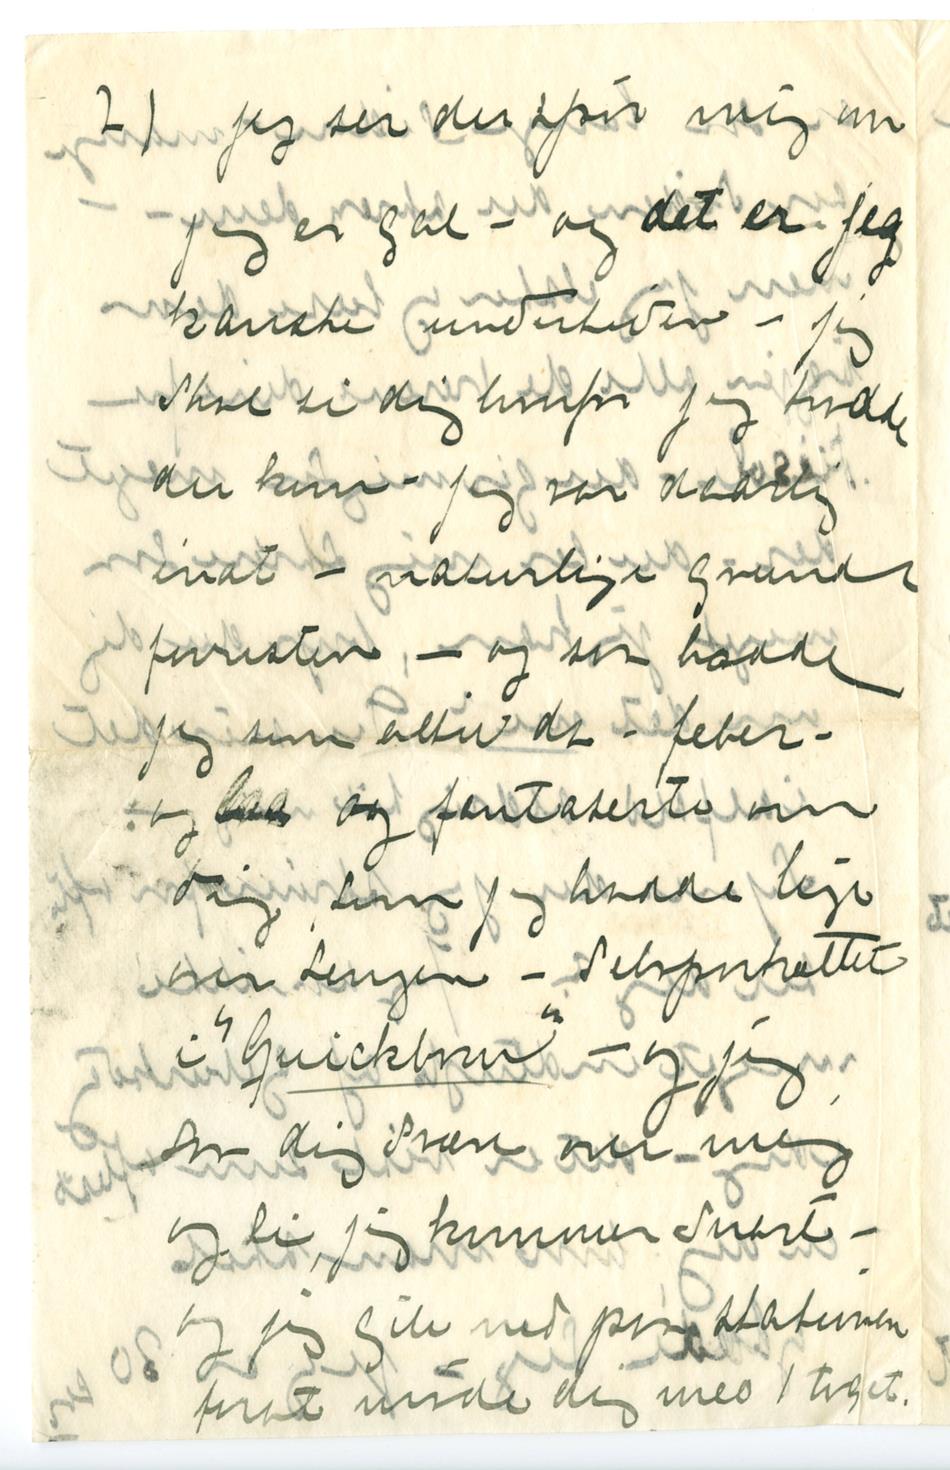 2) jeg ser du spør mig om
jeg er gal - og det er jeg
kanske undertiden - jeg
skal si dig hvorfor jeg trodde
du kom - jeg var daarlig
inat - naturlige grunde
forresten - og saa hadde
jeg som altid da - feber -
og laa og fantaserte om
dig, som jeg hadde lige
over sengen - Selvportrættet
i "Quickborn" - og jeg
saa dig svæve over mig
og si, jeg kommer snart -
og jeg gik ned paa stationen
forat møde dig med 1 toget.